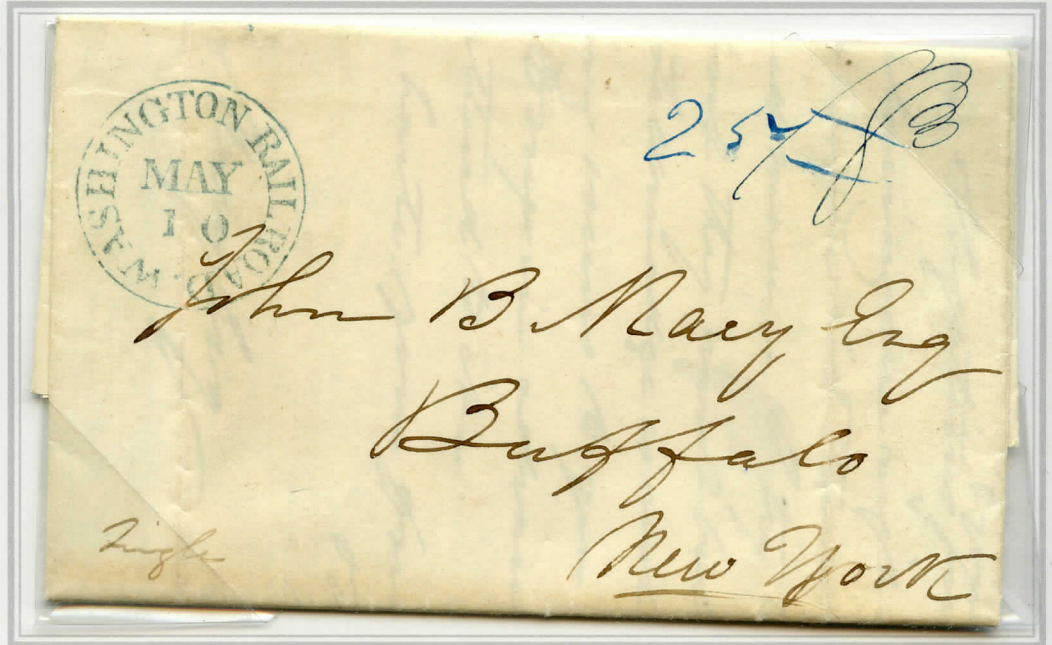 WASHINGTON RAIL ROAD.
MAY
10
25
John B. Macy Esq
Buffalo
New York
Single